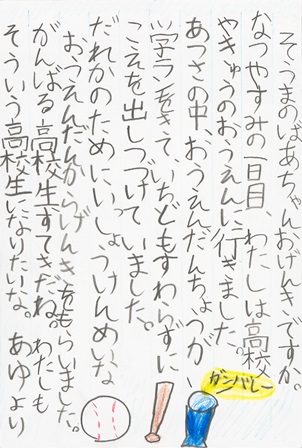 そうまのばあちゃんおげんきですか
なつやすみの一日目、わたしは高校
やきゅうのおうえんに行きました。
あつさの中、おうえんだんちょうが、
学ランをきて、いちどもすわらずに
こえを出しつづけていました。
だれかのためにいっしょうけんめいな
おうえんだんからげんきをもらいました。
がんばる高校生すてきだね。わたしも
そういう高校生になりたいな。あゆより
ガンバレー